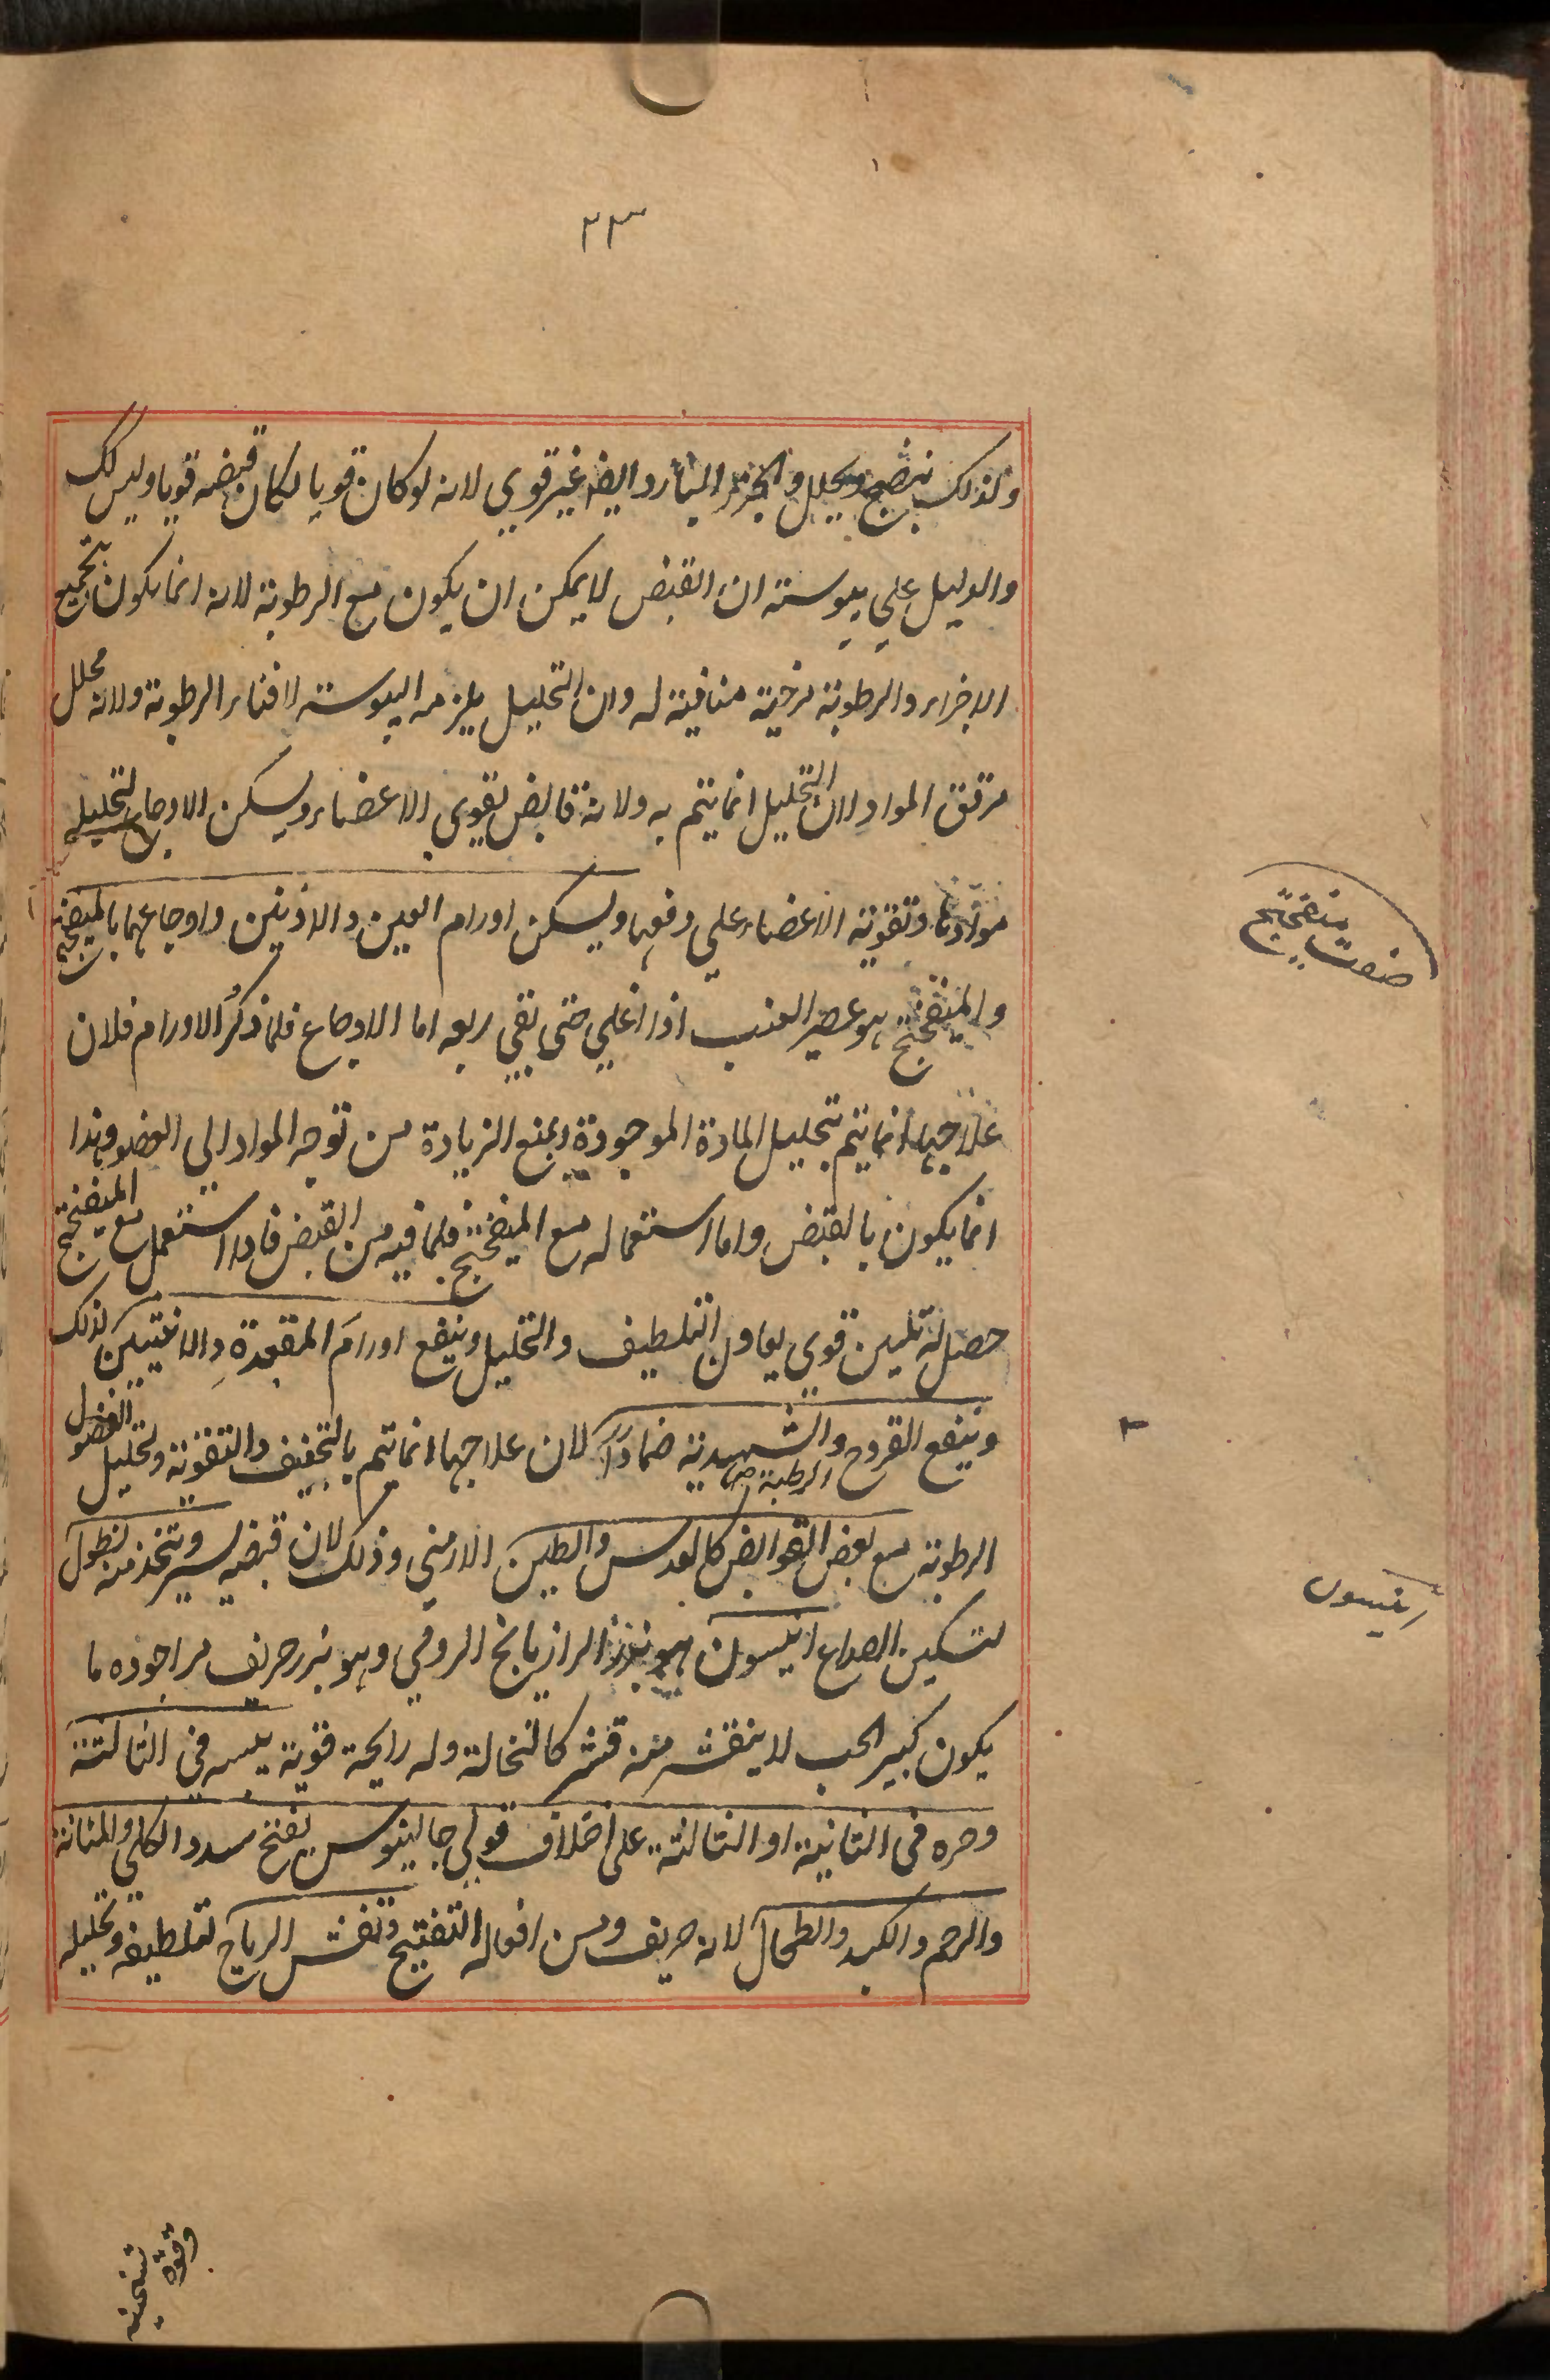 ٢٣
ولذلك ينضج ويحلل والجزء البارد ايضا غير قوي لانه لو كان قويا لكان قبضه قويا وليس كك
والدليل علي يبوسته ان القبض لا يمكن ان يكون مع الرطوبة لانه انما يكون بتجميع
الاجزاء والرطوبة مرخية منافية له وان التحليل يلزمه اليبوسته لافناء الرطوبة ولانه محلل
مرقق المواد لان التحليل انما يتم به ولانه قابض يقوي الاعضاء ويسكن الاوجاع لتحليل
موادها وتقوية الاعضاء علي دفعها ويسكن اورام العين والاذنين واوجاعهما بالميفختج
والميفختج هو عصير العنب اذا اغلي حتى بقي ربعه اما الاوجاع فلما ذكر الاورام فلان
علاجها انما يتم بتحليل المادة الموجودة وبمنع الزيادة من توجه المواد الي العضو وهذا
انما يكون بالقبض واما استعماله مع الميفختج فلما فيه من القبض فاذا استعمل مع الميفختج
حصل له تليين قوي يعاون التلطيف والتحليل وينفع اورام المقعدة والانثيين لذلك
وينفع القروح والشهدية ضمادا لان علاجها انما يتم بالتجفيف والتقوية وتحليل الفضول
الرطبة صح
الرطوبة مع بعض القوابض كالعدس والطين الارمني وذلك لان قبضه يسير ويتخذ منه نطول
لتسكين الصداع انيسون هو بزر الرازيانج الرومي وهو بزر حريف مر اجوده ما
يكون كبير الحب لا ينقشر منه قشر كالنخالة وله رايحة قوية يبسه في الثالثة
وحره في الثانية او الثالثة على اختلاف قولي جالينوس يفتح سدد الكلي والمثانة
والرحم والكبد والطحال لانه حريف ومن افعاله التفتيح وتفش الرياح لتلطيفه وتحليله
صفت ميفختج
انيسون
وقوة
تسخينه